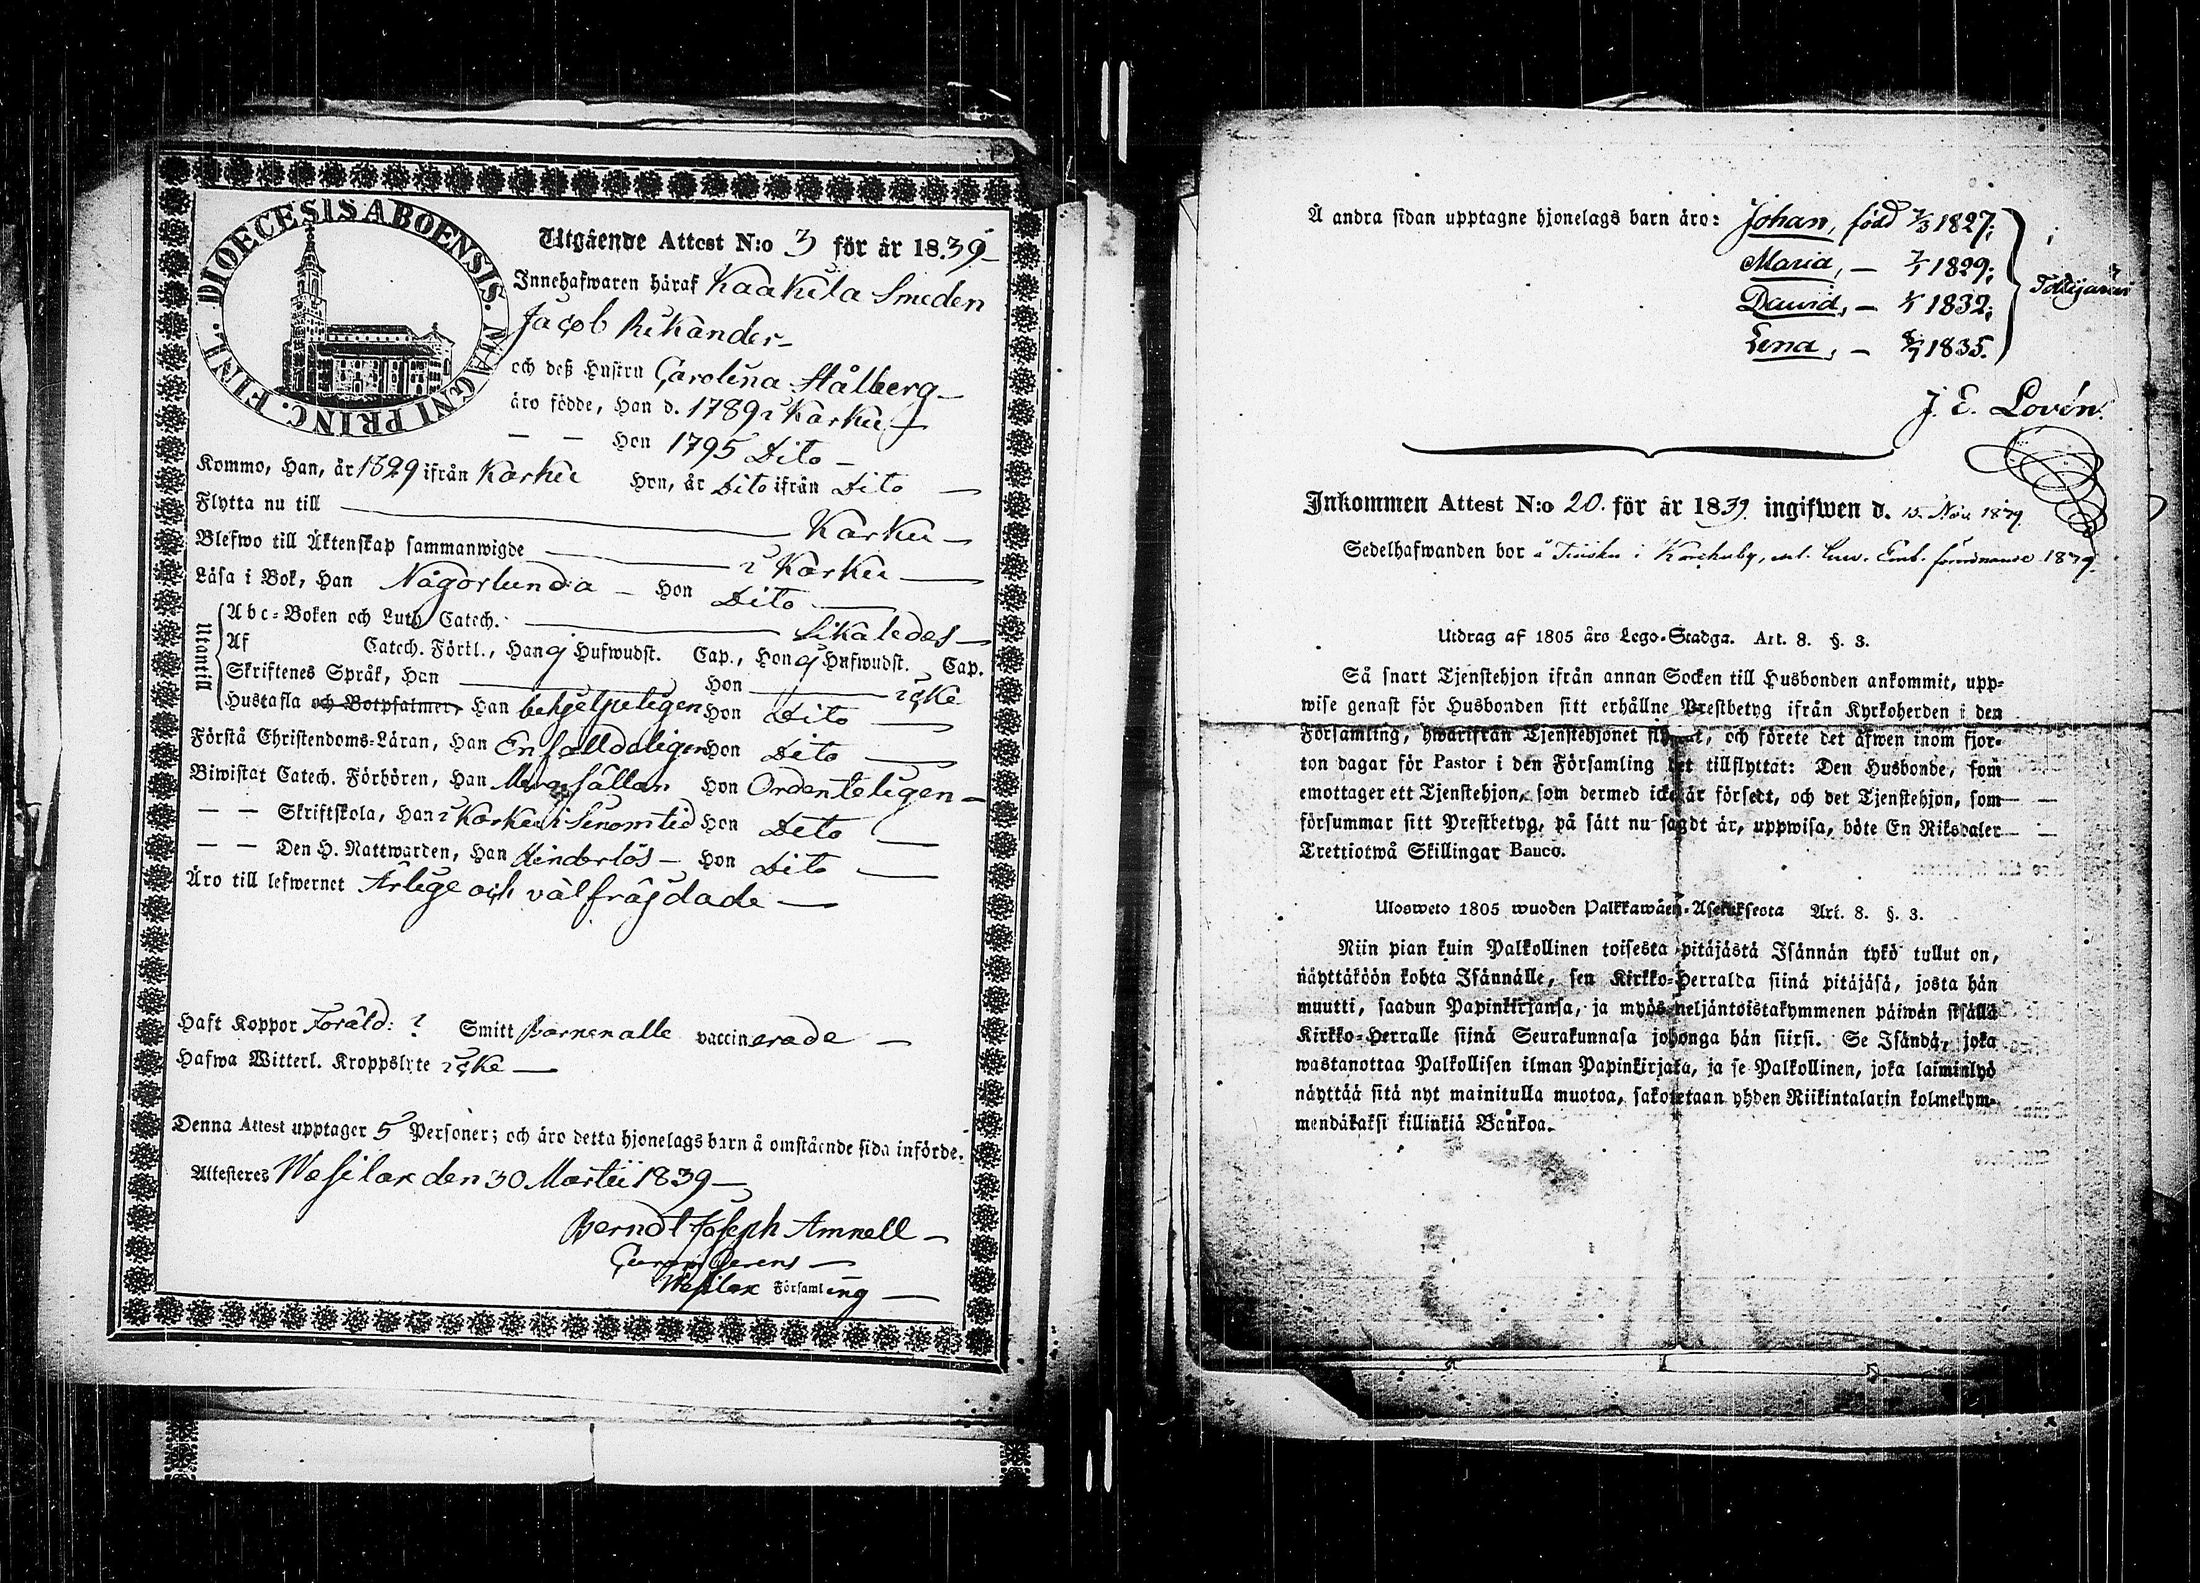 DIOECESIS ABOENSIS. MAGNI PRINC. FINL.
Utgående Attest N:o 3 för år 1839
Innehafwaren häraf Kaakila Smeden
Jacob Rikander
och deß Hustru Carolina Stålberg
äro födde, Han d. 1789 i Karku
— — Hon 1795 Dito
Kommo, Han, år 1829 ifrån Karku Hon, år Dito ifrån Dito
Flytta nu till Karku
Blefwo till Äktenskap sammanwigde i Karku
Läsa i Bok, Han Någorlunda Hon Dito
Utantill
Abc-Boken och Luth. Catech. Likaledes
Af Catech. Förkl., Han g Hufwudst. Cap., Hon g Hufwudst. Cap.
Skriftenes Språk, Han Hon icke
Hustafla och Botpsalmer, Han behjelpeligen Hon Dito
Förstå Christendoms-Läran, Han Enfalldeligen Hon Dito
Biwistat Catech. Förhören, Han sällan Hon Ordenteligen
— — Skriftskola, Han i Karku i sinom tid Hon Dito
— — Den H. Nattwarden, Han hinderlös Hon Dito
Äro till lefwernet Ärlige och välfräjdade
Haft Koppor Föräld: ? Smitt Barnen alle vaccinerade
Hafwa Witterl. Kroppslyte icke
Denna Attest upptager 5 Personer; och äro detta hjonelags barn å omstående sida införde.
Attesteres Wesilax den 30 Martii 1839
Berndt Joseph Amnell
Wesilax Församling
Å andra sidan upptagne hjonelags barn äro: Johan, född 7/3 1827;
Maria, — 7/1 1829;
David, — 1/1 1832;
Lena, — 1835.
i
J. E. Lovén.
Inkommen Attest N:o 20. för år 1839. ingifwen d. 15. Nov. 1839
Sedelhafwanden bor å i
Utdrag af 1805 års Lego-Stadga. Art. 8. §. 3.
Så snart Tjenstehjon ifrån annan Socken till Husbonden ankommit, upp-
wise genast för Husbonden sitt erhållne Prestbetyg ifrån Kyrkoherden i den
Församling, hwarifrån Tjenstehjonet flyttat, och förete det äfwen inom fjor-
ton dagar för Pastor i den Församling det tillflyttat: Den Husbonde, som
emottager ett Tjenstehjon, som dermed icke är försedt, och det Tjenstehjon, som
försummar sitt Prestbetyg, på sätt nu sagdt är, uppwisa, böte En Riksdaler
Trettiotwå Skillingar Banco.
Ulosweto 1805 wuoden Palkkawäen-Asetuksesta Art. 8. §. 3.
Niin pian kuin Palkollinen toisesta pitäjästä Isännän tykö tullut on,
näyttäköön kohta Isännälle, sen Kirkko-Herralda siinä pitäjäsä, josta hän
muutti, saadun Papinkirjansa, ja myös neljäntoistakymmenen päiwän sisällä
Kirkko-Herralle siinä Seurakunnasa johonga hän siirsi. Se Isändä, joka
wastanottaa Palkollisen ilman Papinkirjata, ja se Palkollinen, joka laiminlyö
näyttää sitä nyt mainitulla muotoa, sakotetaan yhden Riikintalarin kolmekym-
mendäkaksi killinkiä Bankoa.